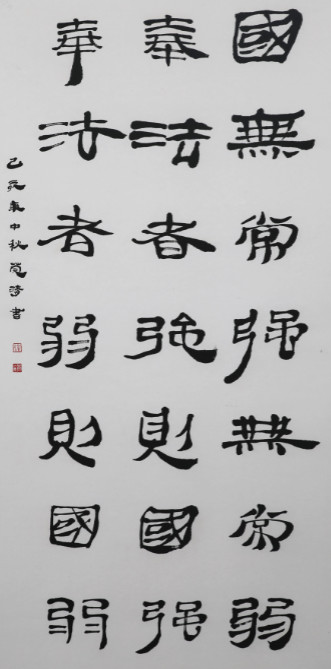 國無常强無常弱
奉法者强則國强
奉法者弱則國弱
己亥年中秋書